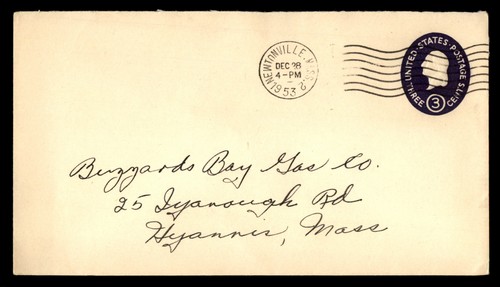 NEWTONVILLE, MASS.
DEC 28
4-PM
1953
UNITED·STATES·POSTAGE
THREE 3 CENTS
Buzzards Bay Gas Co.
25 Iyanough Rd
Hyannis, Mass